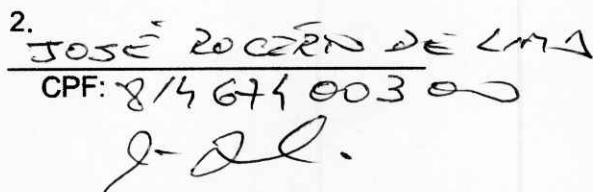 2.
JOSÉ ROGÉRIO DE LIMA
CPF: 814 674 003 00